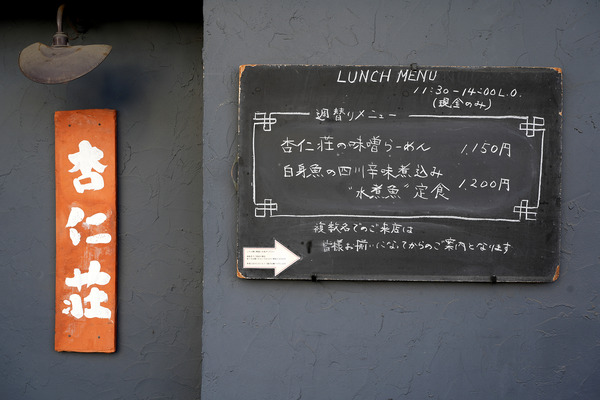 杏仁荘
LUNCH MENU
11:30-14:00L.O.
(現金のみ)
週替りメニュー
杏仁荘の味噌らーめん 1,150円
白身魚の四川辛味煮込み
"水煮魚"定食 1,200円
複数名でのご来店は
皆様お揃いになってからのご案内となります